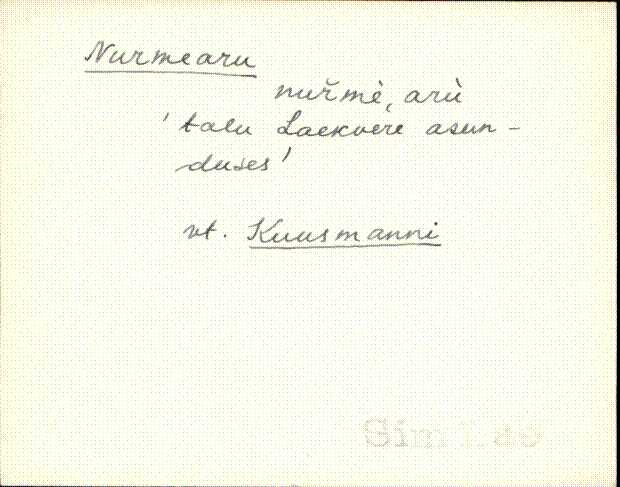 Nurmearu
nuřmè, arù
' talu Laekvere asun-
duses '
vt. Kuusmanni